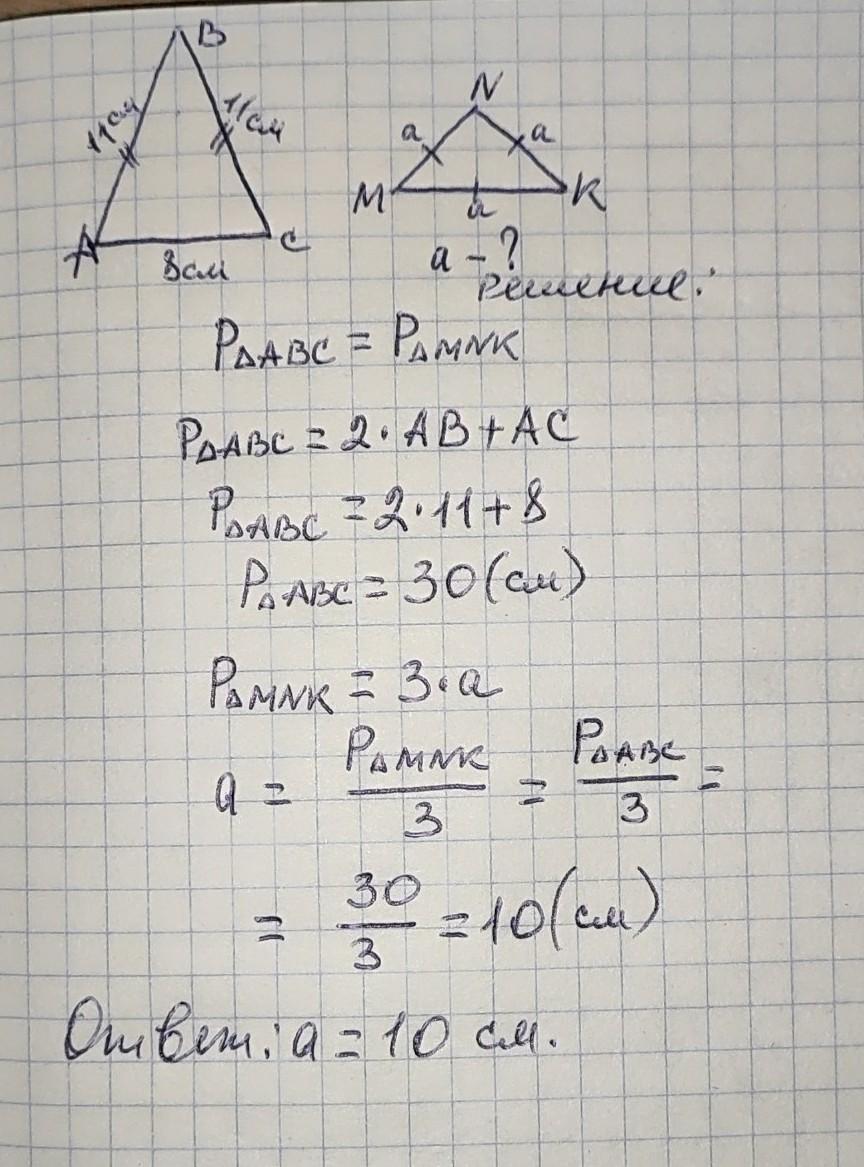 B
11см
11см
A
C
8см
N
a
a
M
K
a
a - ?
Решение:
P△ABC = P△MNK
P△ABC = 2·AB+AC
P△ABC = 2·11+8
P△ABC = 30(см)
P△MNK = 3·a
a = P△MNK/3 = P△ABC/3 =
= 30/3 = 10(см)
Ответ: a = 10 см.